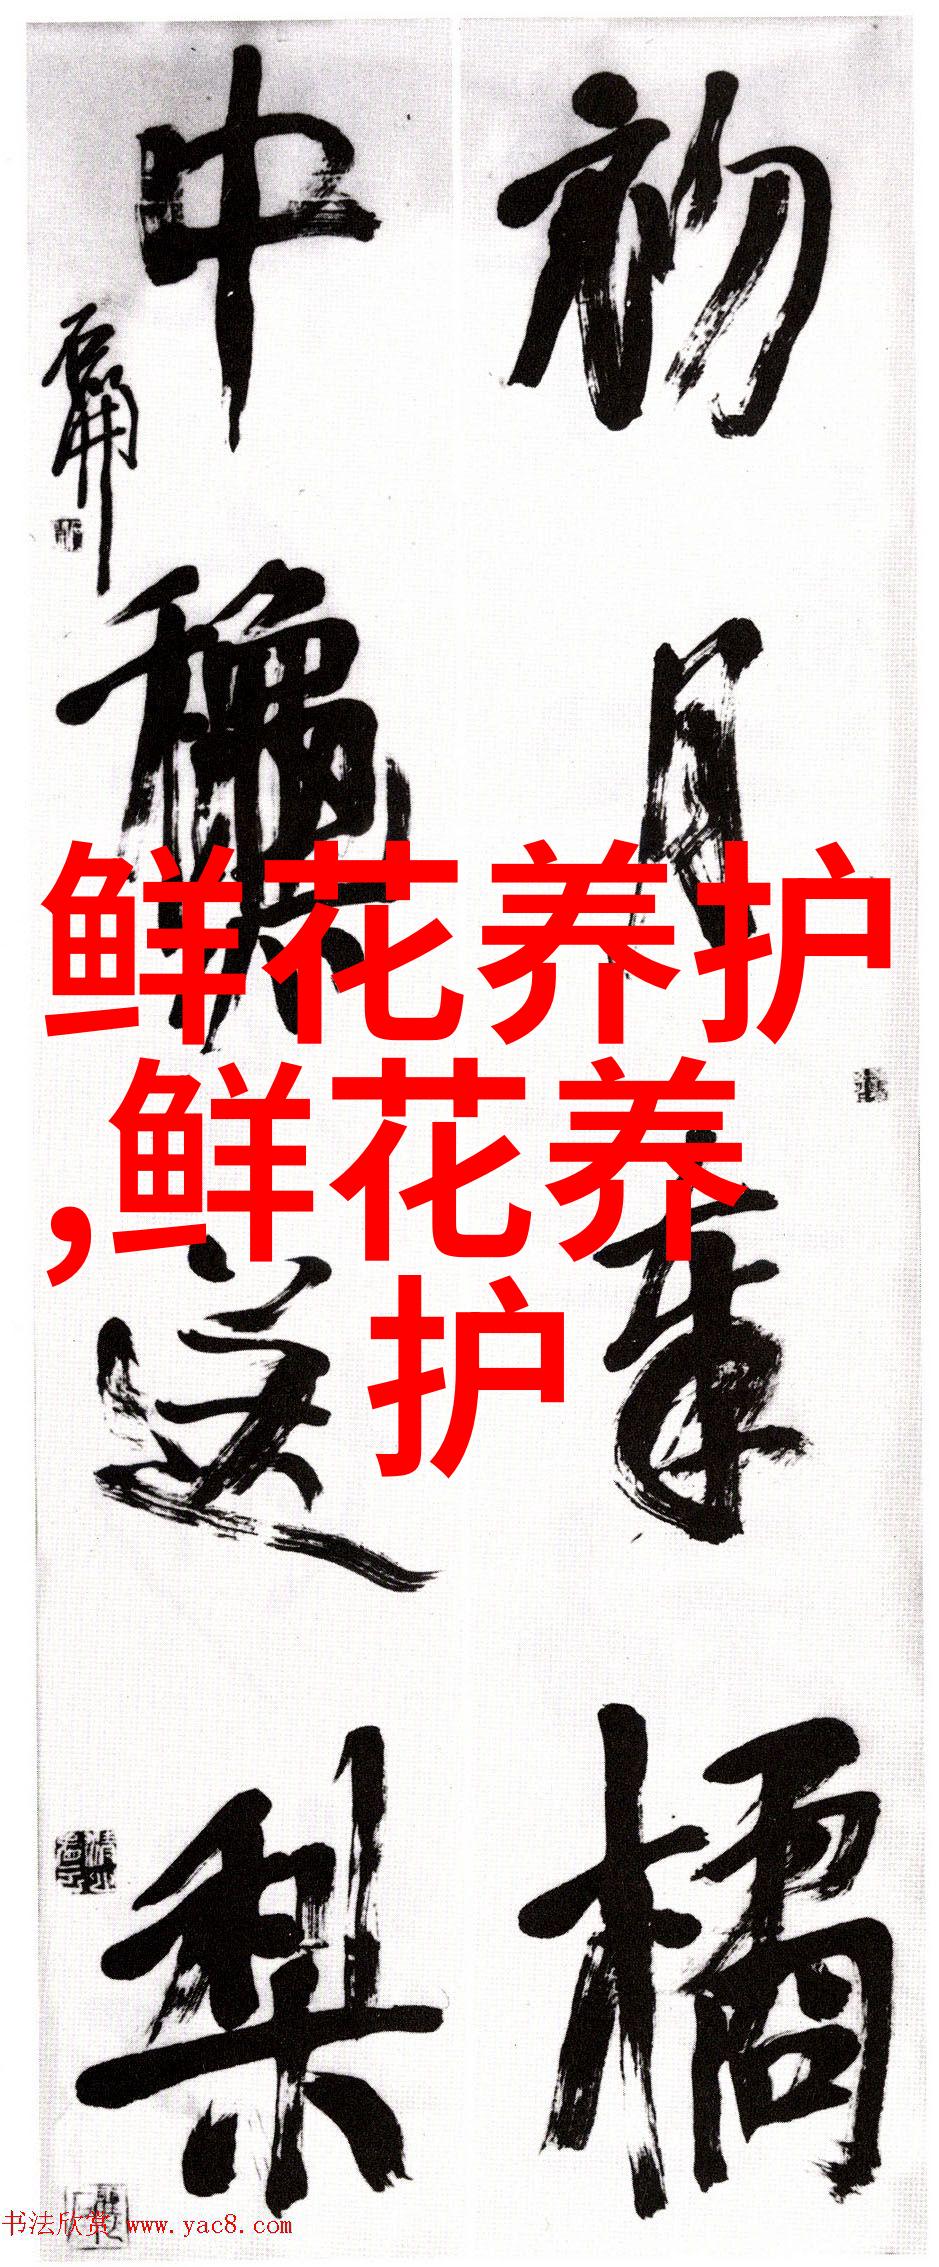 鲜花养护
,鲜花养
护
初月橘
中送梨
石开
书法欣赏 www.yac8.com